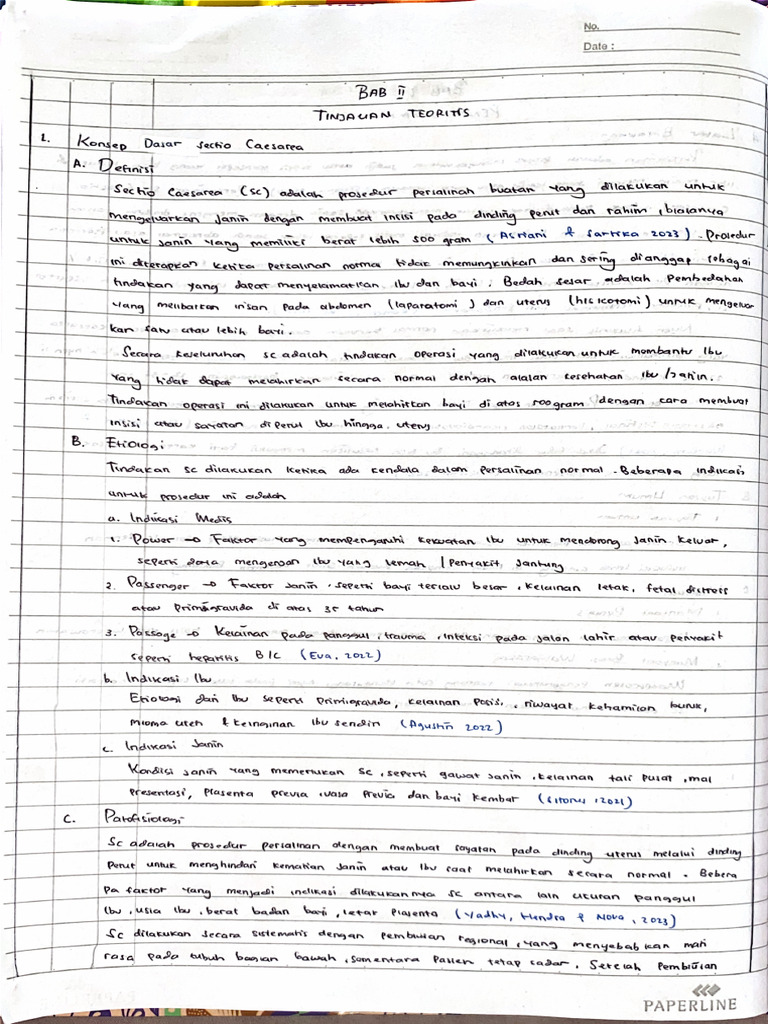 No.
Date :
BAB II
TINJAUAN TEORITIS
1. Konsep Dasar Sectio Caesarea
A. Definisi
Sectio Caesarea (SC) adalah prosedur persalinan buatan yang dilakukan untuk
mengeluarkan janin dengan membuat insisi pada dinding perut dan rahim, biasanya
untuk janin yang memiliki berat lebih 500 gram (Asriani & Sartika 2023). Prosedur
ini diterapkan ketika persalinan normal tidak memungkinkan dan sering dianggap sebagai
tindakan yang dapat menyelamatkan ibu dan bayi. Bedah sesar adalah Pembedahan
yang melibatkan irisan pada abdomen (laparatomi) dan uterus (hisicotomi) untuk mengeluar
kan satu atau lebih bayi.
Secara keseluruhan SC adalah tindakan operasi yang dilakukan untuk mombantu ibu
yang tidak dapat melahirkan secara normal dengan alalan kesehatan ibu / janin.
Tindakan operasi ini dilakukan untuk melahirkan bayi di atas 500gram dengan cara membuat
insisi atau sayatan diperut ibu hingga uterus
B. Etiologi
Tindakan SC dilakukan ketika ada kendala dalam persalinan normal. Beberapa indikasi
untuk prosedur ini adalah
a. Indikasi Medis
1. Power → Faktor yang mempengaruhi kekuatan ibu untuk mendorong janin keluar,
seperti daya mengejan ibu yang lemah / Penyakit jantung
2. Passenger → Faktor janin, seperti bayi terlalu besar, kelainan letak, fetal distress
atau Primigravida di atas 35 tahun
3. Passage → Kelainan pada panggul, trauma, infeksi pada jalan lahir atau penyakit
seperti hepatitis B/C (Eva, 2022)
b. Indikasi Ibu
Etiologi dari ibu seperti primigravida, kelainan posisi, riwayat kehamilan buruk,
mioma uteri & keinginan ibu sendiri (Agustin 2022)
c. Indikasi Janin
Kondisi janin yang memerlukan SC, seperti gawat janin, kelainan tali pusat, mal
presentasi, Plasenta previa, vasa Previa dan bayi kembar (Sitorus, 2021)
C. Patofisiologi
SC adalah prosedur persalinan dengan membuat sayatan pada dinding uterus melalui dinding
perut untuk menghindari kematian janin atau ibu saat melahirkan secara normal. Bebera
pa faktor yang menjadi indikasi dilakukannya SC antara lain ukuran panggul
ibu, usia ibu, berat badan bayi, letak plasenta (Yadhy, Hendra & Nova, 2023)
SC dilakukan secara sistematis dengan pembiusan regional, yang menyebabkan mati
rasa pada tubuh bagian bawah, sementara Pasien tetap sadar. Setelah Pembiusan
PAPERLINE